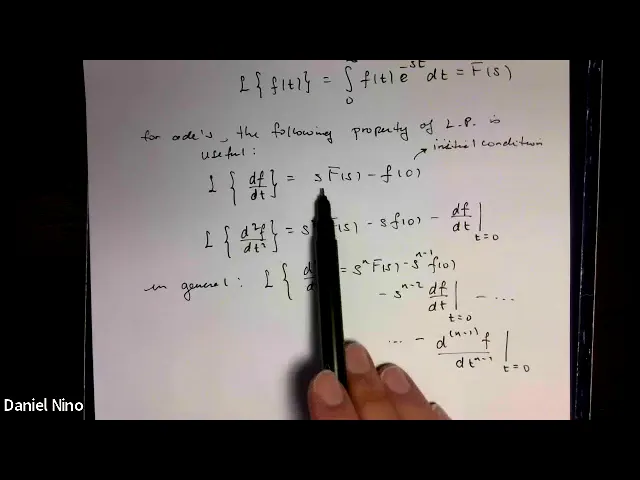 L { f(t) } = ∫₀^∞ f(t) e^-st dt = F(s)
for ode's, the following property of L.P. is
useful:
initial condition
L { df/dt } = s F(s) - f(0)
L { d²f/dt² } = s F(s) - s f(0) - df/dt | t=0
in general: L { d = sⁿ F(s) - sⁿ⁻¹ f(0)
- sⁿ⁻² df/dt | t=0 - ...
... - d⁽ⁿ⁻¹⁾ f / dtⁿ⁻¹ | t=0
Daniel Nino